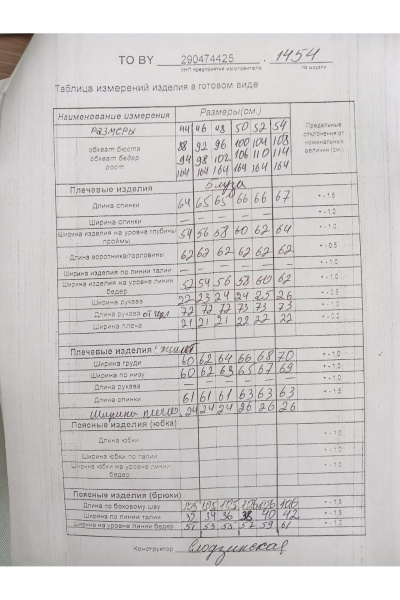 TO BY 290474425 . 1454
УНП предприятия изготовителя № модели
Таблица измерений изделия в готовом виде
Наименование измерения Размеры(см.) Предельные отклонения от номинальных величин (см)
РАЗМЕРЫ 44 46 48 50 52 54
обхват бюста 88 92 96 100 104 108
обхват бедер 94 98 102 106 110 114
рост 164 164 164 164 164 164
Плечевые изделия блуза
Длина спинки 64 65 65 66 66 67 + - 1,5
Ширина спинки — — — — — — + - 1,0
Ширина изделия на уровне глубины проймы 54 56 58 60 62 64 + - 1,0
Длина воротника/горловины 62 62 62 62 62 62 + - 0,5
Ширина изделия по линии талии — — — — — — + - 1,0
Ширина изделия на уровне линии бедер 52 54 56 58 60 62 + - 1,0
Ширина рукава 22 23 24 24 25 26 + - 0,5
Длина рукава 72 72 72 73 73 73 + - 1,0
Ширина плеча 21 21 21 22 22 22 + - 0,2
Плечевые изделия: жилет
Ширина груди 60 62 64 66 68 70 + - 1,0
Ширина по низу 60 62 63 65 67 69 + - 1,0
Длина рукава — — — — — — + - 1,0
Длина спинки 61 61 61 63 63 63 + - 1,5
Ширина плеча 24 24 24 26 26 26
Поясные изделия (юбка)
Длина юбки + - 1,0
Ширина юбки по талии + - 1,0
Ширина юбки на уровне линии бедер + - 1,0
Поясные изделия (брюки)
Длина по боковому шву 105 105 105 106 106 106 + - 1,5
Ширина по линии талии 32 34 36 38 40 42 + - 1,5
Ширина на уровне линии бедер 51 53 55 57 59 61 + - 1,0
Конструктор Слодзинская